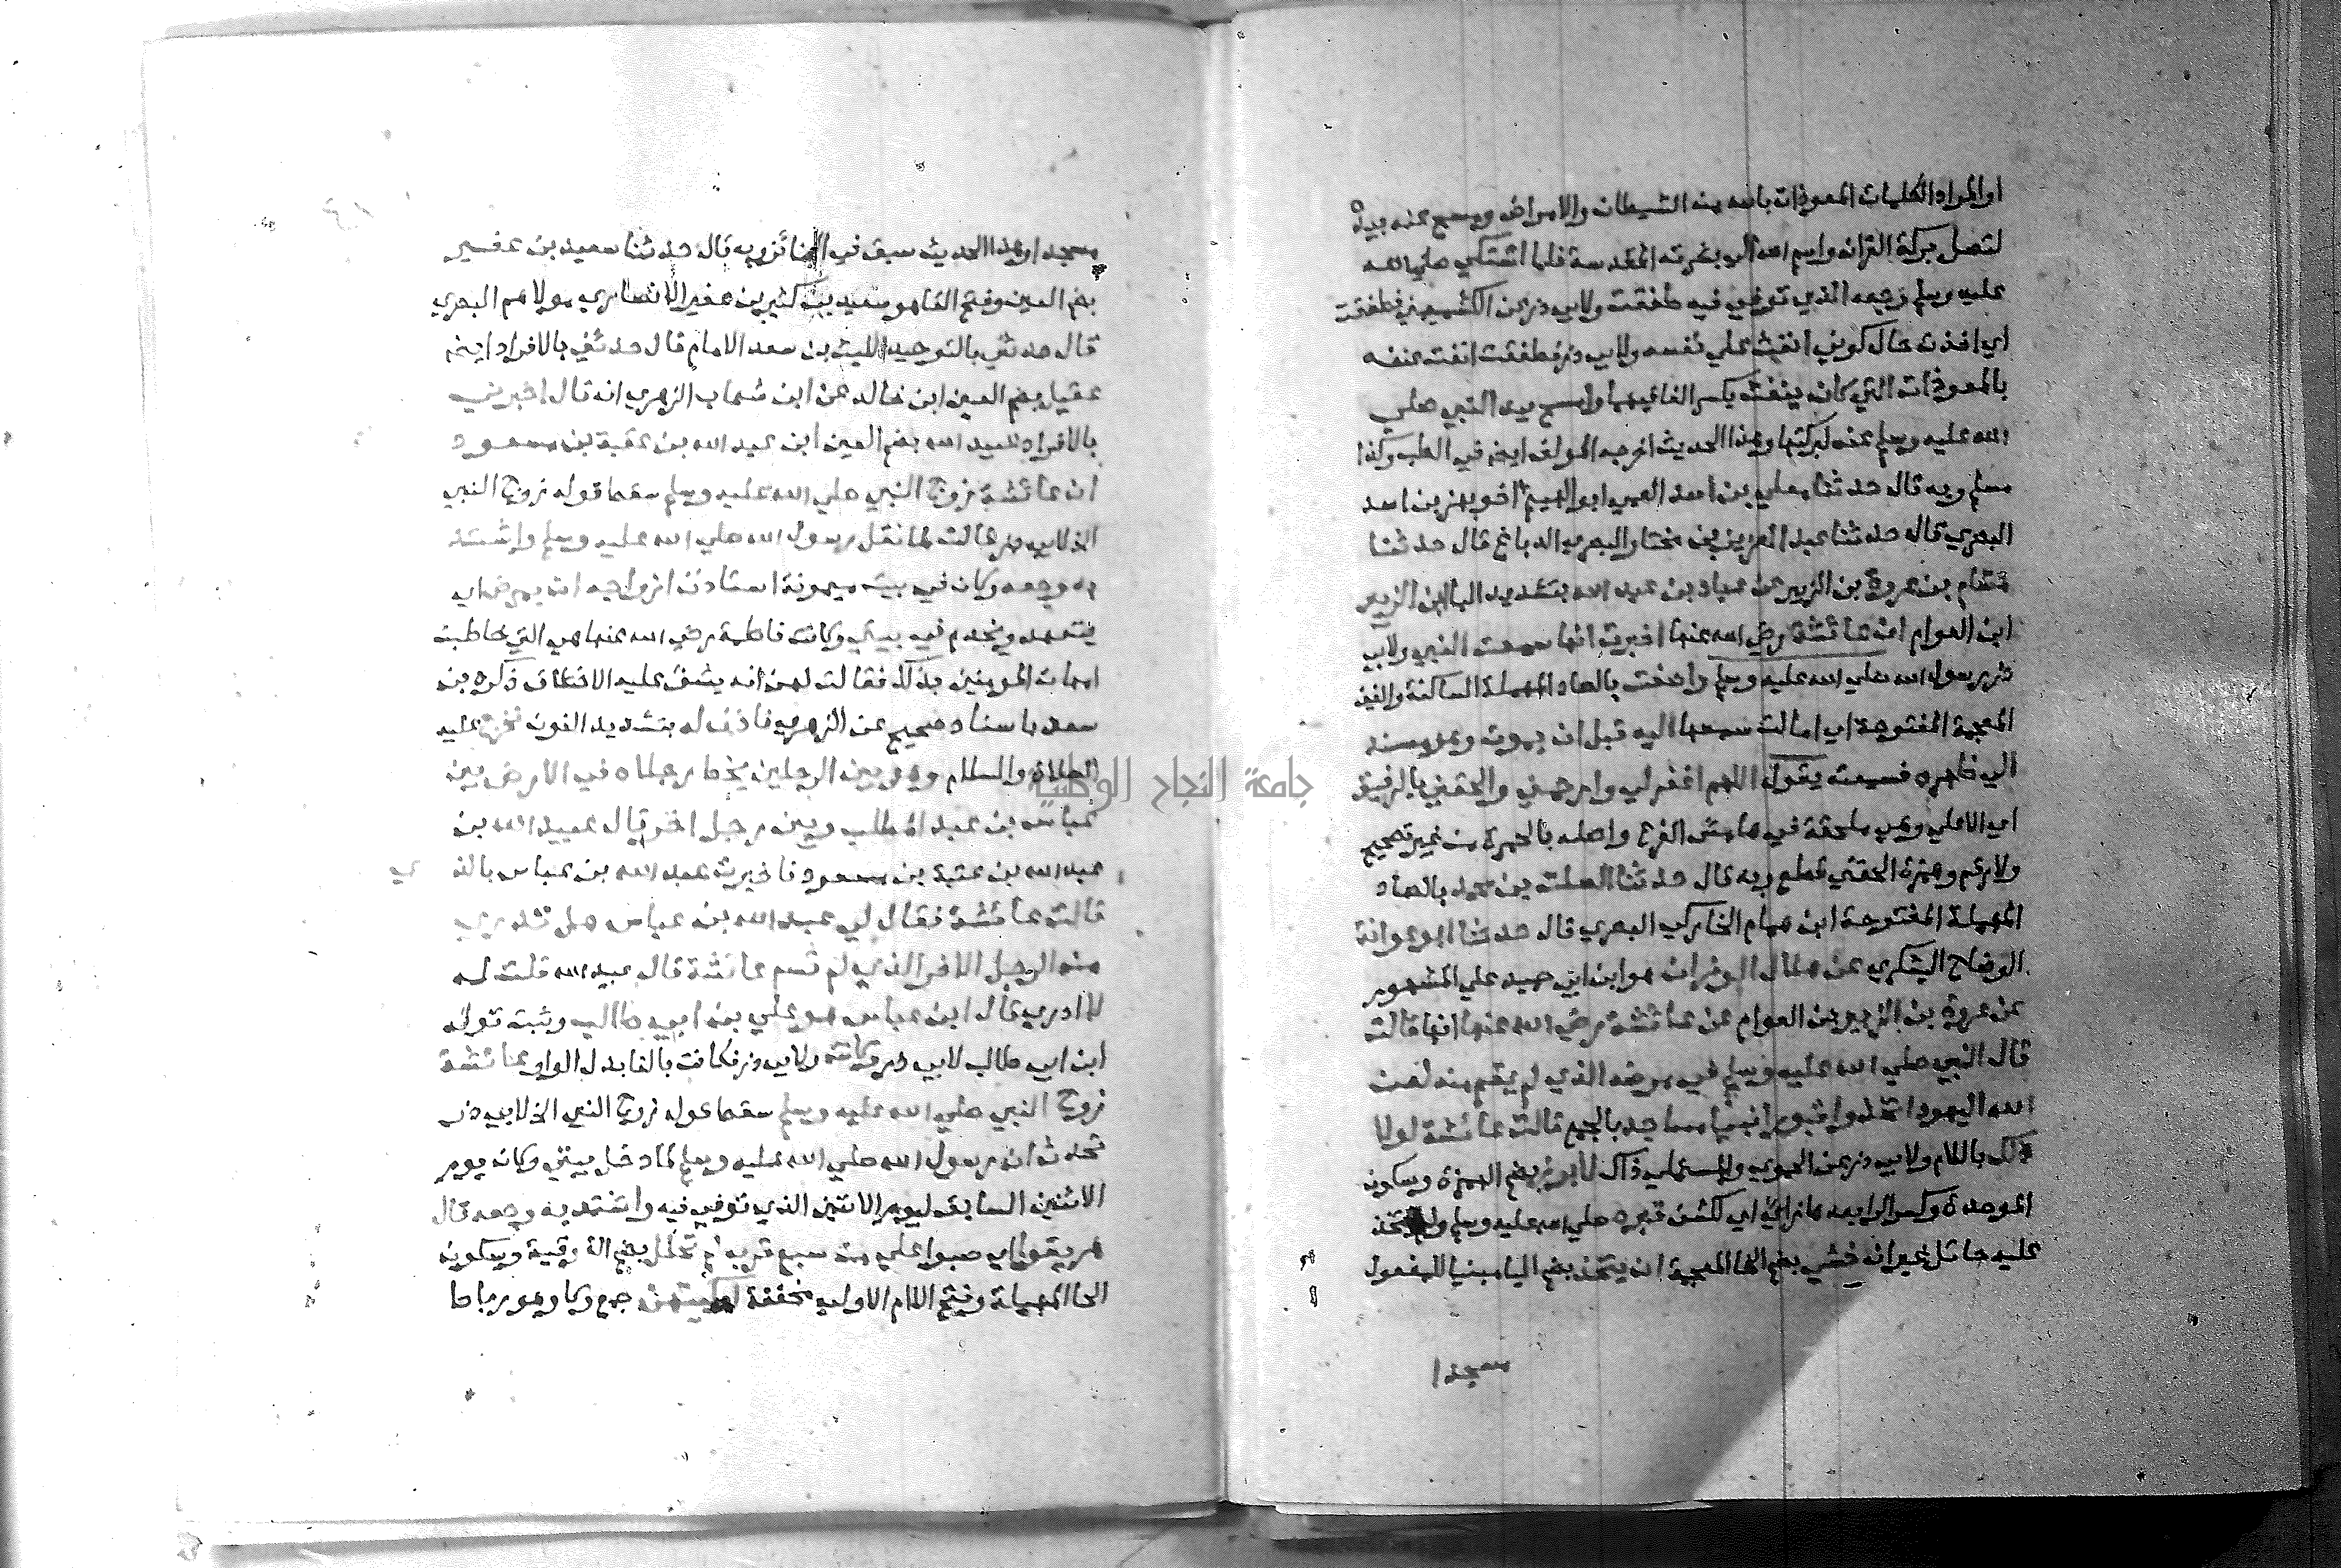 او المراد الكلمات المعوذات بالله من الشيطان والامراض ومسح عنه بيده
لتصل بركة القران واسم الله الي بشرته المقدسة فلما اشتكي صلي الله
عليه وسلم وجعه الذي توفي فيه طفقت ولابي ذر عن الكشميهني فطفقت
اي اخذت حال كوني انفث علي نفسه ولابي ذر فطفقت انفث عنه
بالمعوذات التي كان ينفث بكسر الفا فيهما وامسح بيد النبي صلي
الله عليه وسلم عنه لبركتها وهذا الحديث اخرجه المولف ايضا في الطب وكذا
مسلم وبه قال حدثنا معلي بن اسد العمي ابو الهيثم اخو بهز بن اسد
البصري قال حدثنا عبد العزيز بن مختار البصري الدباغ قال حدثنا
هشام بن عروة بن الزبير عن عباد بن عبد الله بتشديد البا ابن الزبير
ابن العوام ان عائشة رضي الله عنها اخبرته انها سمعت النبي ولابي
ذر رسول الله صلي الله عليه وسلم واصغت بالصاد المهملة الساكنة والغين
المعجمة المفتوحة اي امالت سمعها اليه قبل ان يموت وهو مسند
الي ظهره فسمعته يقول اللهم اغفر لي وارحمني والحقني بالرفيق
اي الاعلي وهي ملحقة في هامش الفرع واصله بالحمرة من غير تصحيح
ولا رقم وهمزة الحقني قطع وبه قال حدثنا الصلت بن محمد بالصاد
المهملة المفتوحة ابن همام الخاركي البصري قال حدثنا ابو عوانة
الوضاح اليشكري عن هلال الوزان هو ابن ابي حميد علي المشهور
عن عروة بن الزبير بن العوام عن عائشة رضي الله عنها انها قالت
قال النبي صلي الله عليه وسلم في مرضه الذي لم يقم منه لعن
الله اليهود اتخذوا قبور انبيائهم مساجد بالجمع قالت عائشة لولا
ذلك باللام ولابي ذر عن الحموي والمستملي ذاك لابرز بضم الهمزة وسكون
الموحدة وكسر الرا بعدها زاي اي لكشف قبره صلي الله عليه وسلم ولم يتخذ
عليه حائل غير انه خشي بضم الخا المعجمة ان يتخذ بضم اليا مبنيا للمفعول
مسجدا
مسجدا وهذا الحديث سبق في الجنائز وبه قال حدثنا سعيد بن عفير
بضم العين وفتح الفا هو سعيد بن كثير بن عفير الانصاري مولاهم البصري
قال حدثني بالتوحيد الليث بن سعد الامام قال حدثني بالافراد ايضا
عقيل بضم العين ابن خالد عن ابن شهاب الزهري انه قال اخبرني
بالافراد عبيد الله بضم العين ابن عبد الله بن عتبة بن مسعود
ان عائشة زوج النبي صلي الله عليه وسلم سقط قوله زوج النبي
الخ لابي ذر قالت لما ثقل رسول الله صلي الله عليه وسلم واشتد
به وجعه وكان في بيت ميمونة استاذن ازواجه ان يمرض اي
يتعهد ويخدم في بيتي وكانت فاطمة رضي الله عنها هي التي خاطبت
امهات المومنين بذلك فقالت لهن انه يشق عليه الاختلاف ذكره بن
سعد باسناد صحيح عن الزهري فاذن له بتشديد النون فخرج عليه
الصلاة والسلام وهو بين الرجلين يخط رجلاه في الارض بين
عباس بن عبد المطلب وبين رجل اخر قال عبيد الله بن
عبد الله بن عتبة بن مسعود فاخبرت عبد الله بن عباس بالذ ي
قالت عائشة فقال لي عبد الله بن عباس هل تدري
من الرجل الاخر الذي لم تسم عائشة قال عبيد الله قلت له
لا ادري قال ابن عباس هو علي بن ابي طالب وثبت قوله
ابن ابي طالب لابي ذر وكانت ولابي ذر فكانت بالفا بدل الواو عائشة
زوج النبي صلي الله عليه وسلم سقط قوله زوج النبي الخ لابي ذر
تحدث ان رسول الله صلي الله عليه وسلم لما دخل بيتي وكان يوم
الاثنين السابق ليوم الاثنين الذي توفي فيه واشتد به وجعه قال
هريقوا اي صبوا علي من سبع قرب لم تحلل بضم الفوقية وسكون
الحا المهملة وفتح اللام الاولي مخففة اوكيتهن جمع وكا وهو رباط
جامعة النجاح الوطنية